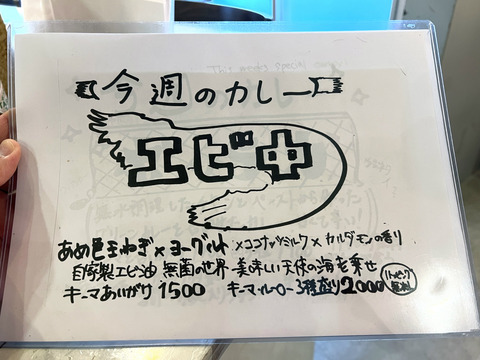 今週のカレー
エビ中
あめ色玉ねぎ×ヨーグルト×ココナッツミルク×カルダモンの香り
自家製エビ油 無菌の世界 美味しい天使の海老乗せ
キーマあいがけ1500 キーマ・ルーロー3種盛り2000 トッピング無料